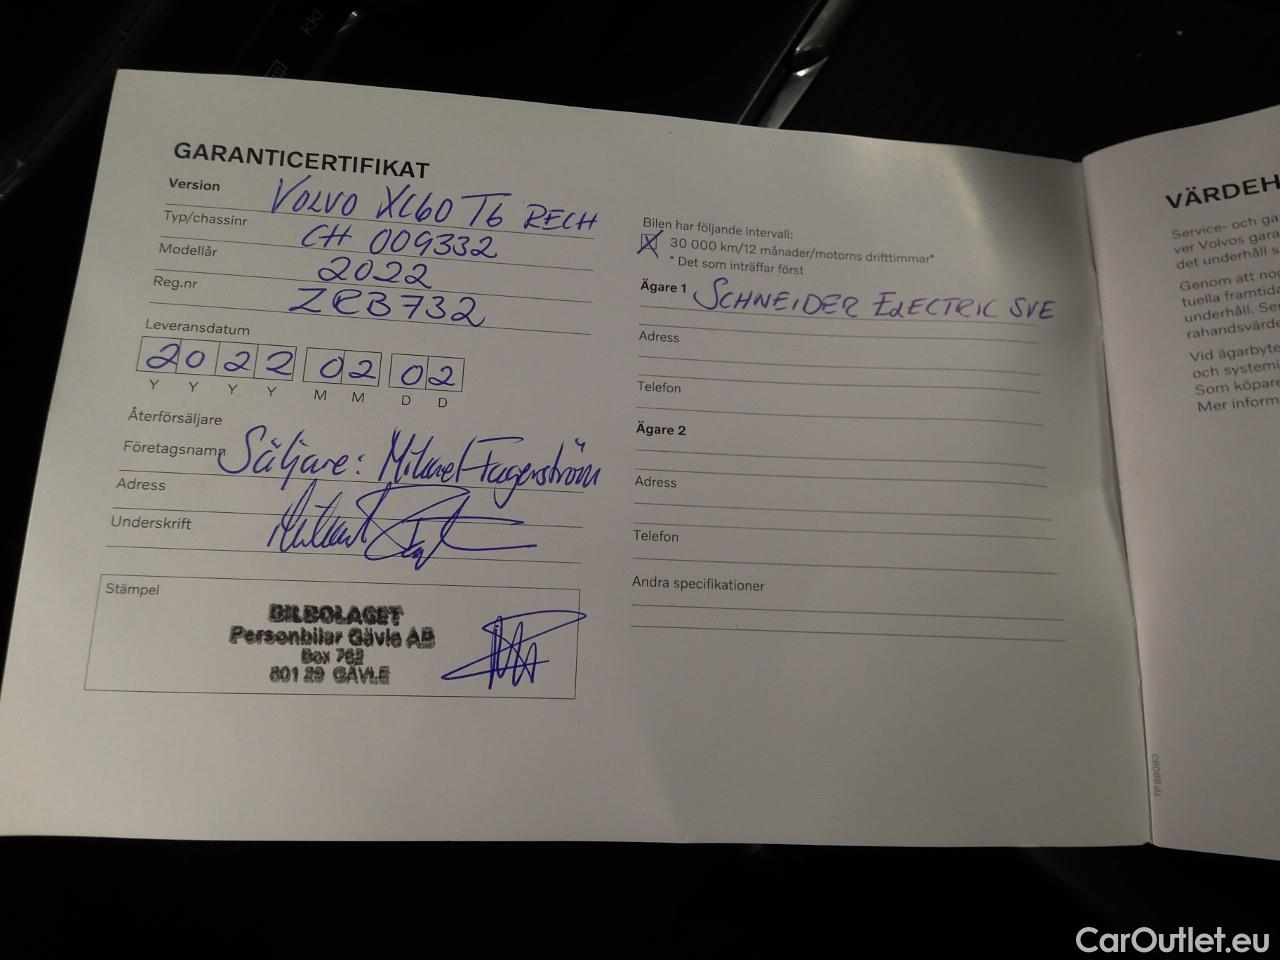 GARANTICERTIFIKAT
Version VOLVO XC60 T6 RECH
Typ/chassinr CH 009332
Modellår 2022
Reg.nr ZCB732
Leveransdatum
2022 02 02
Y Y Y Y M M D D
Återförsäljare
Företagsnamn Säljare: Mikael Fagerström
Adress
Underskrift
Stämpel
BILBOLAGET
Personbilar Gävle AB
Box 762
801 29 GÄVLE
Bilen har följande intervall:
X 30 000 km/12 månader/motorns drifttimmar*
* Det som inträffar först
Ägare 1 SCHNEIDER ELECTRIC SVE
Adress
Telefon
Ägare 2
Adress
Telefon
Andra specifikationer
TP 88080
VÄRDEH
Service- och ga
ver Volvos gara
det underhåll s
Genom att no
tuella framtida
underhåll. Ser
rahandsvärde
Vid ägarbyte
och systemi
Som köpare
Mer inform
CarOutlet.eu